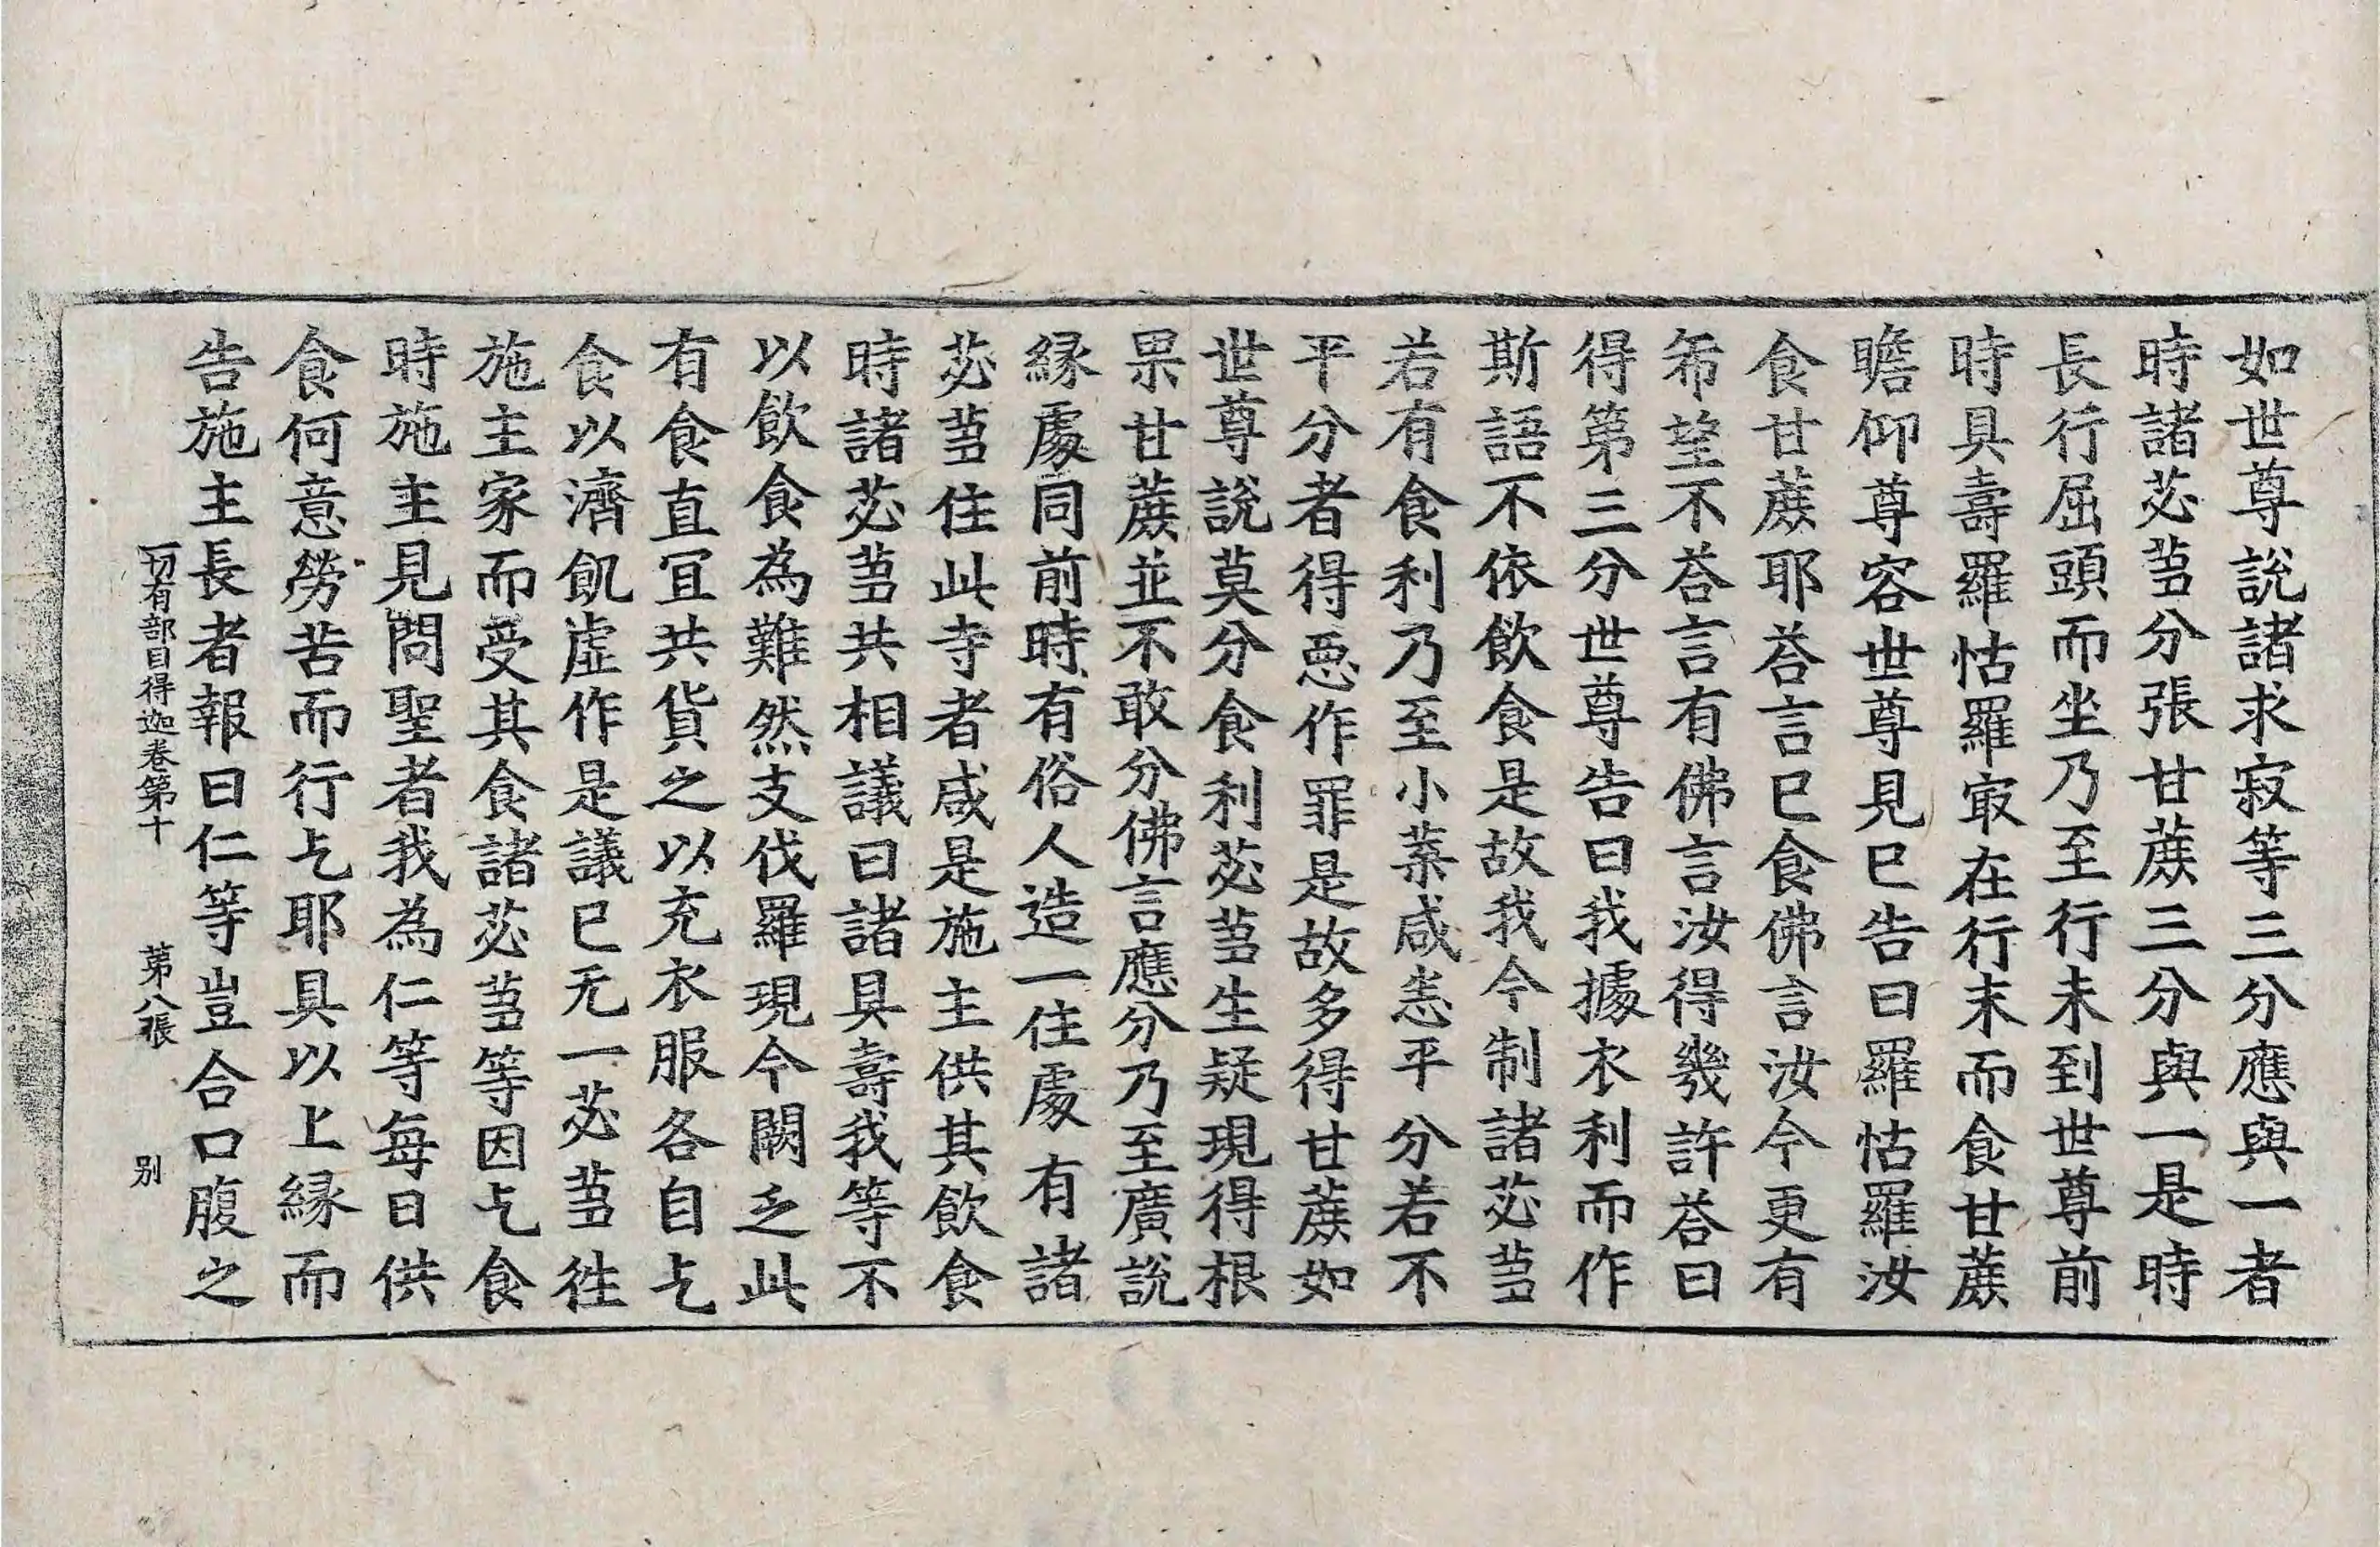 如世尊說諸求寂等三分應與一者
時諸苾芻分張甘蔗三分與一是時
長行屈頭而坐乃至行未到世尊前
時具壽羅怙羅㝡在行末而食甘蔗
瞻仰尊容世尊見已告曰羅怙羅汝
食甘蔗耶荅言已食佛言汝今更有
希望不荅言有佛言汝得幾許荅曰
得第三分世尊告曰我據衣利而作
斯語不依飲食是故我今制諸苾芻
若有食利乃至小葉咸悉平分若不
平分者得惡作罪是故多得甘蔗如
世尊說莫分食利苾芻生疑現得根
果甘蔗並不敢分佛言應分乃至廣說
縁處同前時有俗人造一住處有諸
苾芻住此寺者咸是施主供其飲食
時諸苾芻共相議曰諸具壽我等不
以飲食為難然支伐羅現今闕乏此
有食直冝共貨之以充衣服各自乞
食以濟飢虛作是議已无一苾芻徃
施主家而受其食諸苾芻等因乞食
時施主見問聖者我為仁等每日供
食何意勞苦而行乞耶具以上縁而
告施主長者報曰仁等豈合口腹之
一切有部目得迦卷第十 第八張 別